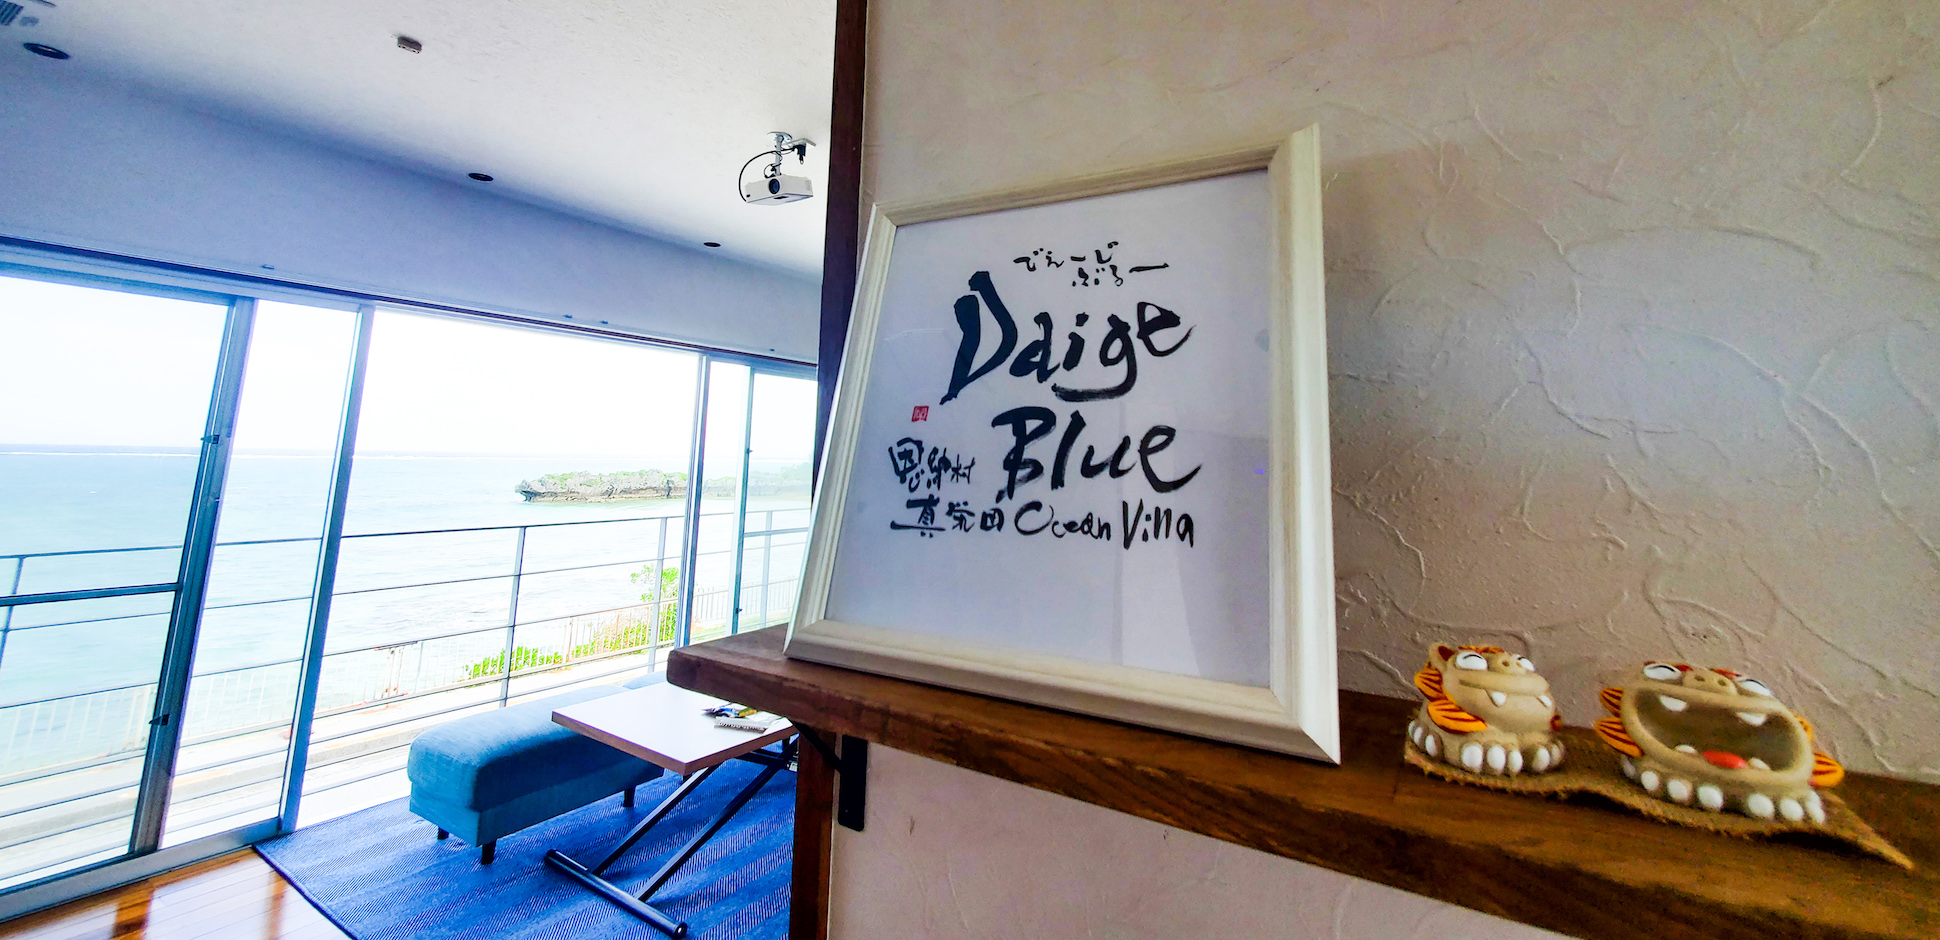 でぇーじ
ぶるー
Daige
Blue
恩納村
真栄田 Ocean Villa